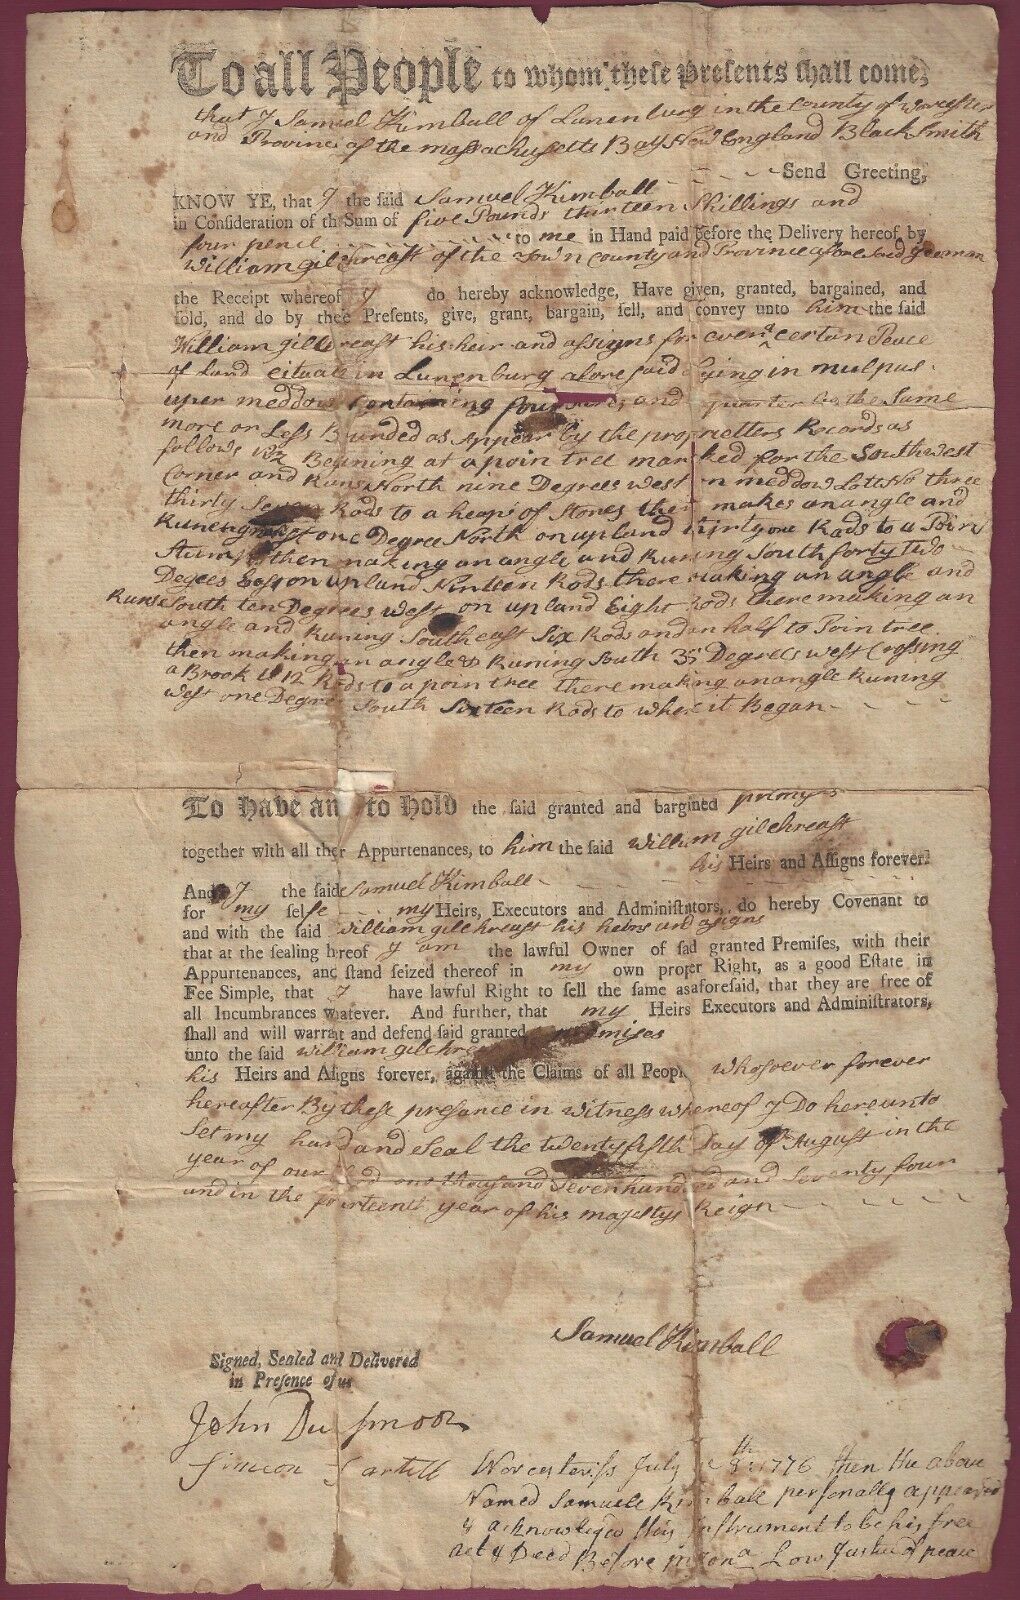 To all People to whom these Presents shall come,
that I Samuel Kimball of Lunenburg in the County of Worcester
and Province of the massachusetts Bay New England Black Smith
Send Greeting,
KNOW YE, that I the said Samuel Kimball
in Consideration of th Sum of five Pounds thirteen Shillings and
four pence to me in Hand paid before the Delivery hereof by
William gilchreast of the Town County and Province afore said yeoman
the Receipt whereof I do hereby acknowledge, Have given, granted, bargained, and
sold, and do by thee Presents, give, grant, bargain, sell, and convey unto him the said
William gilchreast his heir and assigns for ever a certan Peace
of Land cituate in Lunenburg afore said Lying in mulpus
uper meddow containing four and quarter the Same
more or Less Bounded as Appear by the proprietters Records as
follows viz Begining at a poin tree marked for the Southwest
corner and Runs North nine Degrees west on meddow Lott No three
thirty Seven Rods to a heap of Stones then makes an angle and
Runeng one Degree North on upland thirty one Rads to a Poin
Stump then making an angle and Runing South forty two
Degees East on upland Ninteen Rods there making an angle and
Runs South ten Degrees west on upland Eight Rods there making an
angle and Runing South east Six Rods and an half to Poin tree
then making an angle & Runing South 35 Degrees west Crossing
a Brook 12 Rods to a poin tree there making an angle Runing
west one Degree South Sixteen Rods to wher it Began
To have an to hold the said granted and bargined primys
together with all ther Appurtenances, to him the said William gilchreast
his Heirs and Assigns forever.
And I the said Samuel Kimball
for my selfe my Heirs, Executors and Administrators, do hereby Covenant to
and with the said William gilchreast his heirs and asigns
that at the sealing hereof I am the lawful Owner of sad granted Premises, with their
Appurtenances, and stand seized thereof in my own proper Right, as a good Estate in
Fee Simple, that I have lawful Right to sell the same as aforesaid, that they are free of
all Incumbrances whatever. And further, that my Heirs Executors and Administrators,
shall and will warrat and defend said granted premises
unto the said william gilchre
his Heirs and Assigns forever, against the Claims of all People whosoever forever
hereafter By these presance in witness whereof I Do hereunto
Set my hand and Seal the twenty fifth Day of August in the
year of our Lord one thousand Seven hundred and Seventy four
and in the fourteenth year of his magestys Reign
Samuel Kimball
Signed, Sealed and Delivered
in Presence of us
John Du smoor
Simeon Sartell
Worcester ss July 8th 1776 then the above
Named Samuele Kimball personally appeared
& acknowledged this Instrument to be his free
act & Deed Before Jona Low Justice of peace